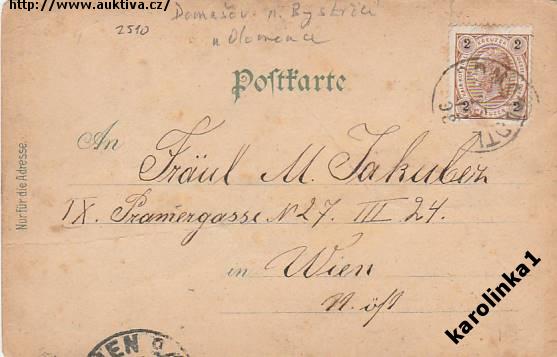 http://www.auktiva.cz/
2510
Domašov n. Bystřicí
u Olomouce
Postkarte
2 KREUZER 2
2 2
Nur für die Adresse.
An
Fräul M. Jakuber
IX. Pramergasse N 27. III 24.
in Wien
N. öst
DEN 9
karolinka1